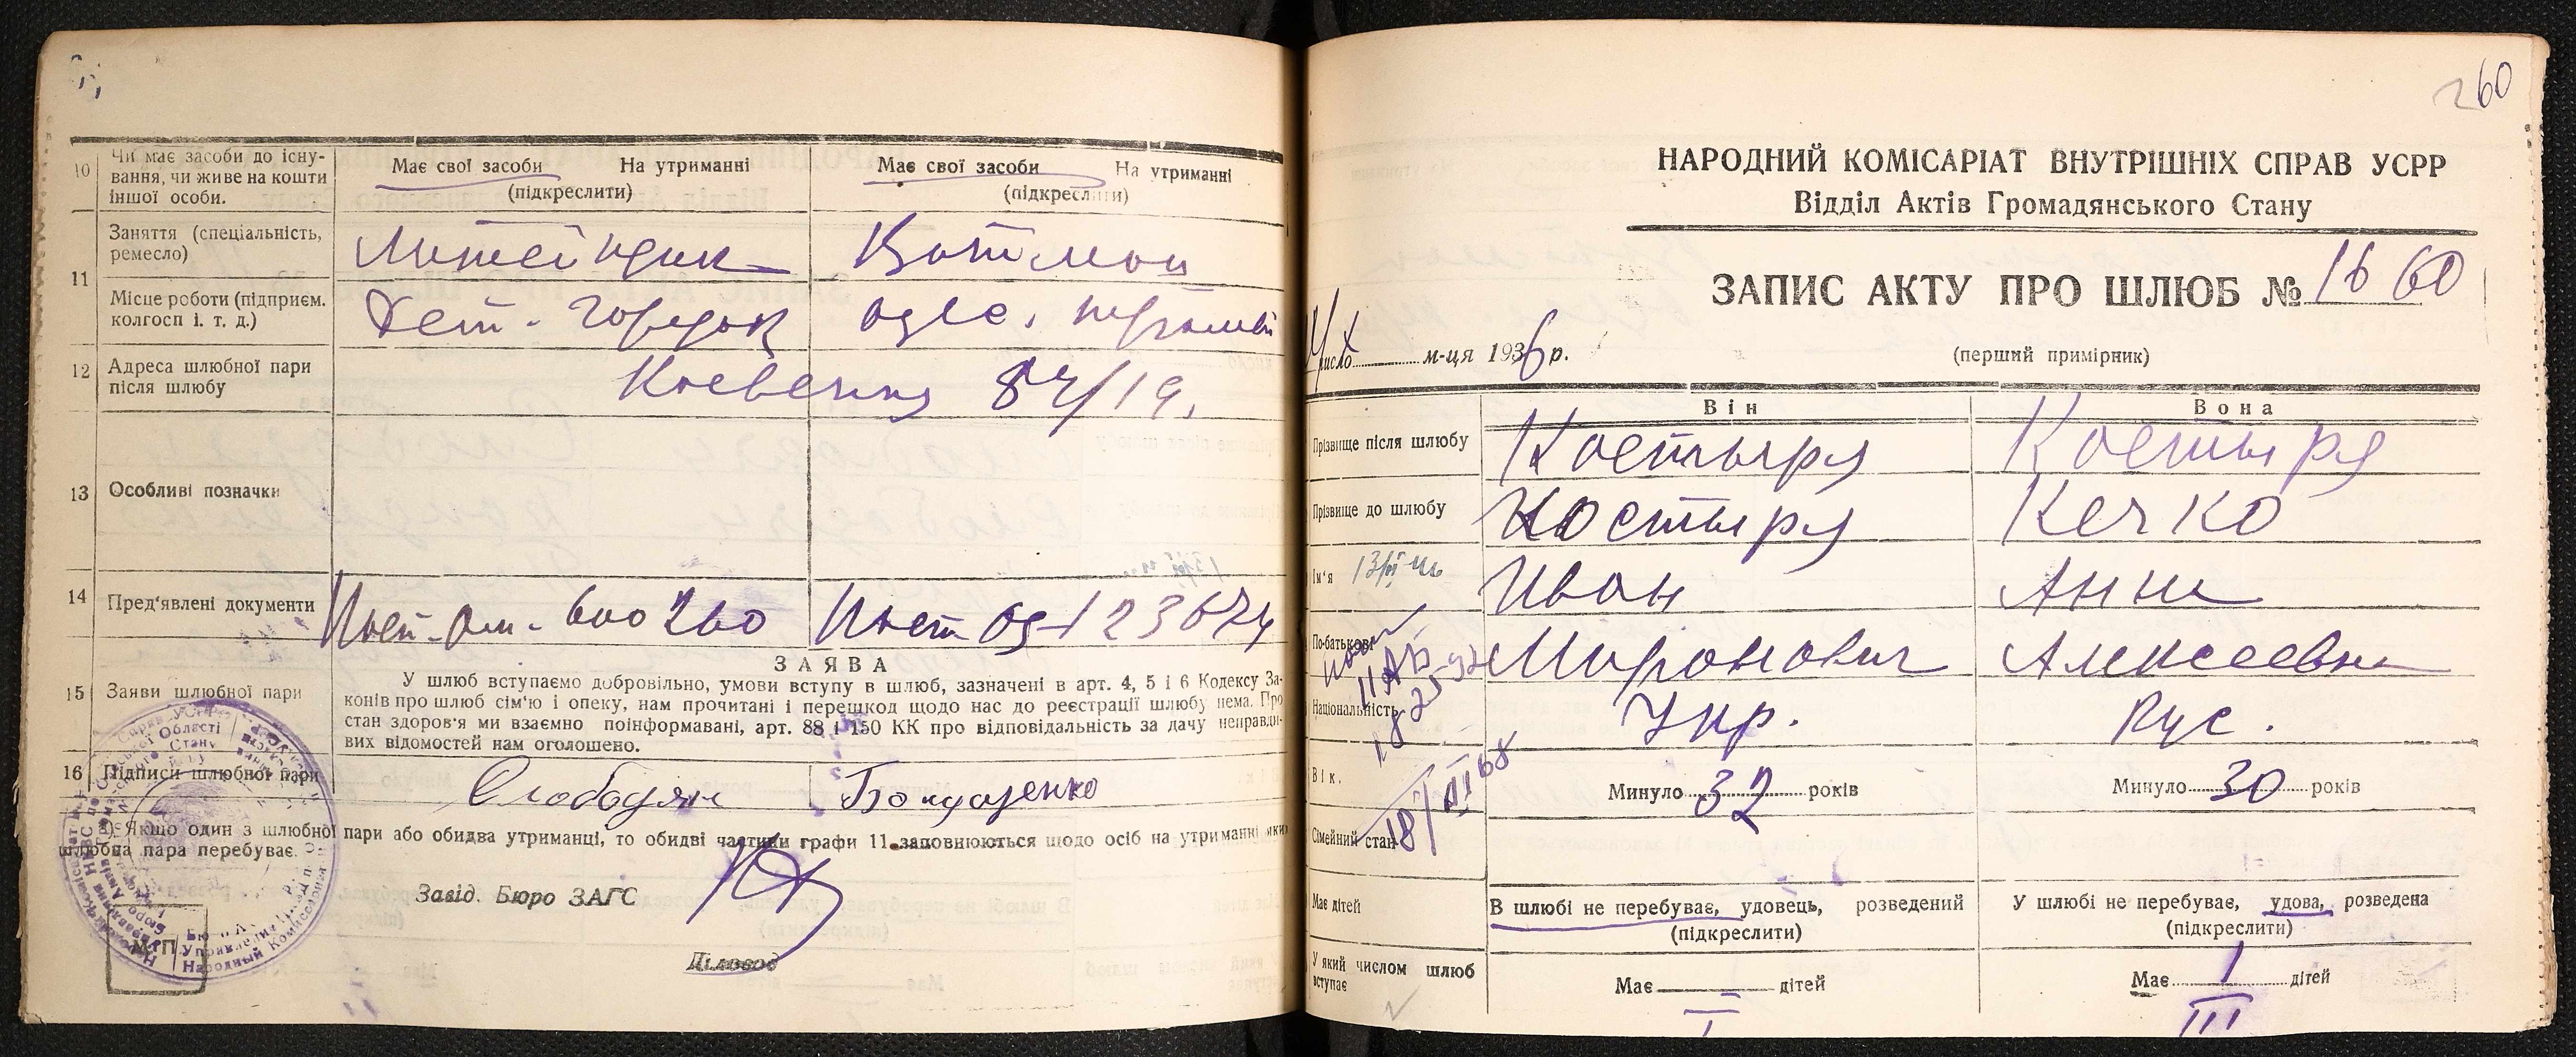 10 Чи має засоби до існування, чи живе на кошти іншої особи.
Має свої засоби На утриманні
(підкреслити)
Має свої засоби На утриманні
(підкреслити)
11 Заняття (спеціальність, ремесло)
Литейщик
Ватман
Місце роботи (підприєм. колгосп і. т. д.)
Дет. городок
Одес. трамвай
12 Адреса шлюбної пари після шлюбу
84/19.
13 Особливі позначки
14 Пред'явлені документи
600260
15 Заяви шлюбної пари
ЗАЯВА
У шлюб вступаємо добровільно, умови вступу в шлюб, зазначені в арт. 4, 5 і 6 Кодексу За-
конів про шлюб сім'ю і опеку, нам прочитані і перешкод щодо нас до реєстрації шлюбу нема. Про
стан здоров'я ми взаємно поінформавані, арт. 88 і 150 КК про відповідальність за дачу неправди-
вих відомостей нам оголошено.
16 Підписи шлюбної пари
Слободян
Бондаренко
Якщо один з шлюбної пари або обидва утриманці, то обидві частини графи 11 заповнюються щодо осіб на утриманні яких
шлюбна пара перебуває.
Завід. Бюро ЗАГС
Діловод
М. П.
260
НАРОДНИЙ КОМІСАРІАТ ВНУТРІШНІХ СПРАВ УСРР
Відділ Актів Громадянського Стану
ЗАПИС АКТУ ПРО ШЛЮБ № 1660
число м-ця 1936 р.
(перший примірник)
Він Вона
Прізвище після шлюбу Костыря Костыря
Прізвище до шлюбу Костыря Кечко
Ім'я Иван Анна
По-батькові Миронович Алексеевна
Національність Укр. Рус.
Вік. Минуло 32 років Минуло 30 років
Сімейний стан
18/VII 68
Має дітей
В шлюбі не перебуває, удовець, розведений
(підкреслити)
У шлюбі не перебуває, удова, розведена
(підкреслити)
У який числом шлюб вступає
Має дітей
Має 1 дітей
I
III